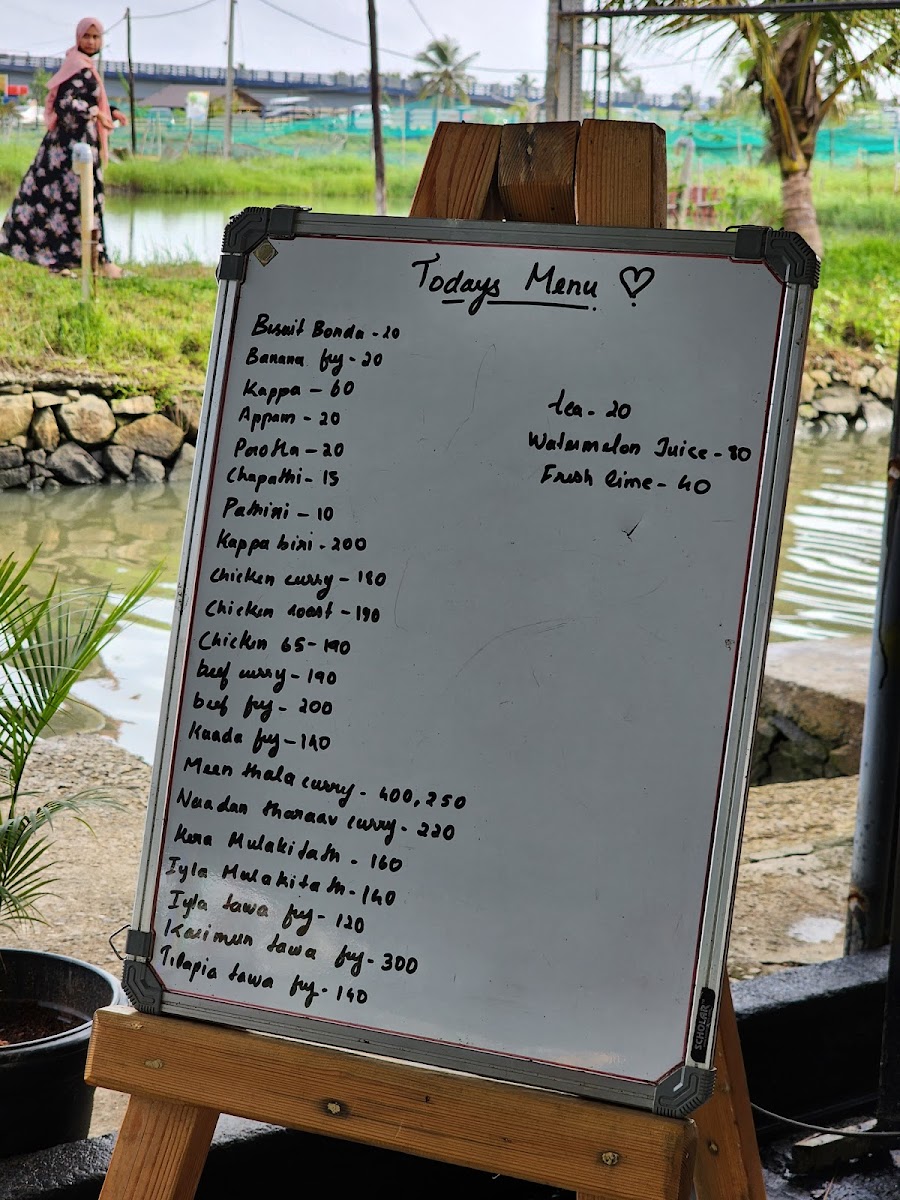 Todays Menu ♡
Biscuit Bonda - 20
Banana fry - 20
Kappa - 60
Appam - 20
Parotta - 20
Chapathi - 15
Pathiri - 10
Kappa biri - 200
Chicken curry - 180
Chicken roast - 190
Chicken 65 - 190
beef curry - 190
beef fry - 200
Kaada fry - 140
Meen thala curry - 400, 250
Naadan tharaav curry - 220
Kera Mulakitath - 160
Iyla Mulakitath - 140
Iyla tawa fry - 120
Karimun tawa fry - 300
Tilapia tawa fry - 140
tea - 20
Watermelon Juice - 80
Fresh lime - 40
SCHOLAR